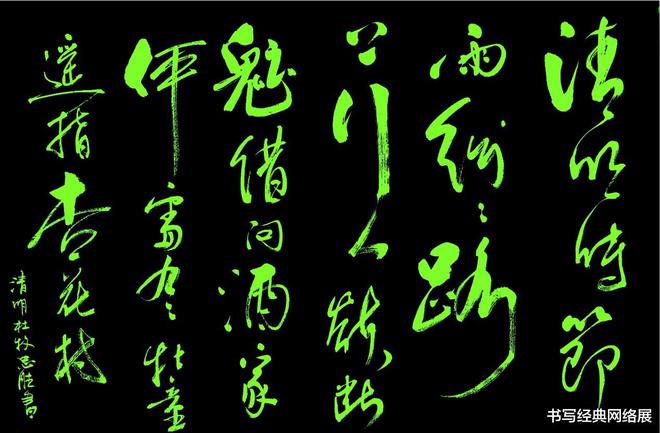 清明時節
雨紛〻路
上行人欲断
魂借问酒家
何處有牧童
遥指杏花村
清明杜牧書
书写经典网络展